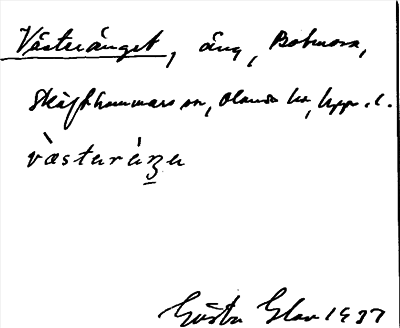 Västeränget, äng, Bobmora,
Skäfthammars sn, Olands hd, Upps. l.
vàsterán̲a
Gösta Glav 1937